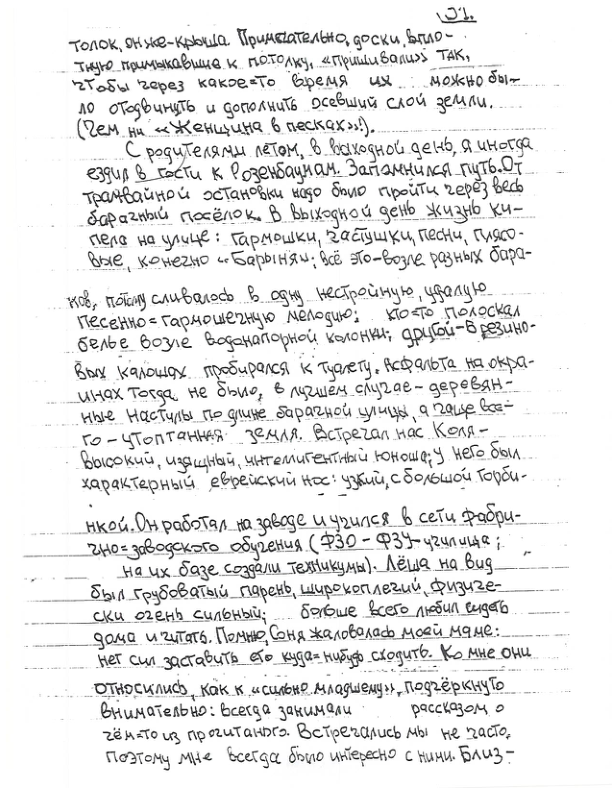 31.
толок, он же-крыша. Примечательно, доски, впло-
тную примыкавшие к потолку, «пришивали» так,
чтобы через какое=то время их можно бы-
ло отодвинуть и дополнить осевший слой земли.
(Чем ни «Женщина в песках»!).
С родителями летом, в выходной день, я иногда
ездил в гости к Розенбаумам. Запомнился путь. От
трамвайной остановки надо было пройти через весь
барачный посёлок. В выходной день жизнь ки-
пела на улице: гармошки, частушки, песни, плясо-
вые, конечно «Барыня»; всё это-возле разных бара-
ков, потому сливалось в одну нестройную, удалую
песенно=гармошечную мелодию; кто=то полоскал
белье возле водонапорной колонки; другой-в резино-
вых калошах пробирался к туалету. Асфальта на окра-
инах тогда не было, в лучшем случае-деревян-
ные настилы по длине барачной улицы, а чаще все-
го-утоптанная земля. Встречал нас Коля-
высокий, изящный, интеллигентный юноша; у него был
характерный еврейский нос: узкий, с большой горби-
нкой. Он работал на заводе и учился в сети фабри-
чно=заводского обучения (ФЗО-ФЗУ-училища;
на их базе создали техникумы). Лёша на вид
был грубоватый парень, широкоплечий, физиче-
ски очень сильный; больше всего любил сидеть
дома и читать. Помню, Соня жаловалась моей маме:
нет сил заставить его куда=нибудь сходить. Ко мне они
относились, как к «сильно младшему», подчёркнуто
внимательно: всегда занимали рассказом о
чём=то из прочитаного. Встречались мы не часто,
поэтому мне всегда было интересно с ними. Близ-